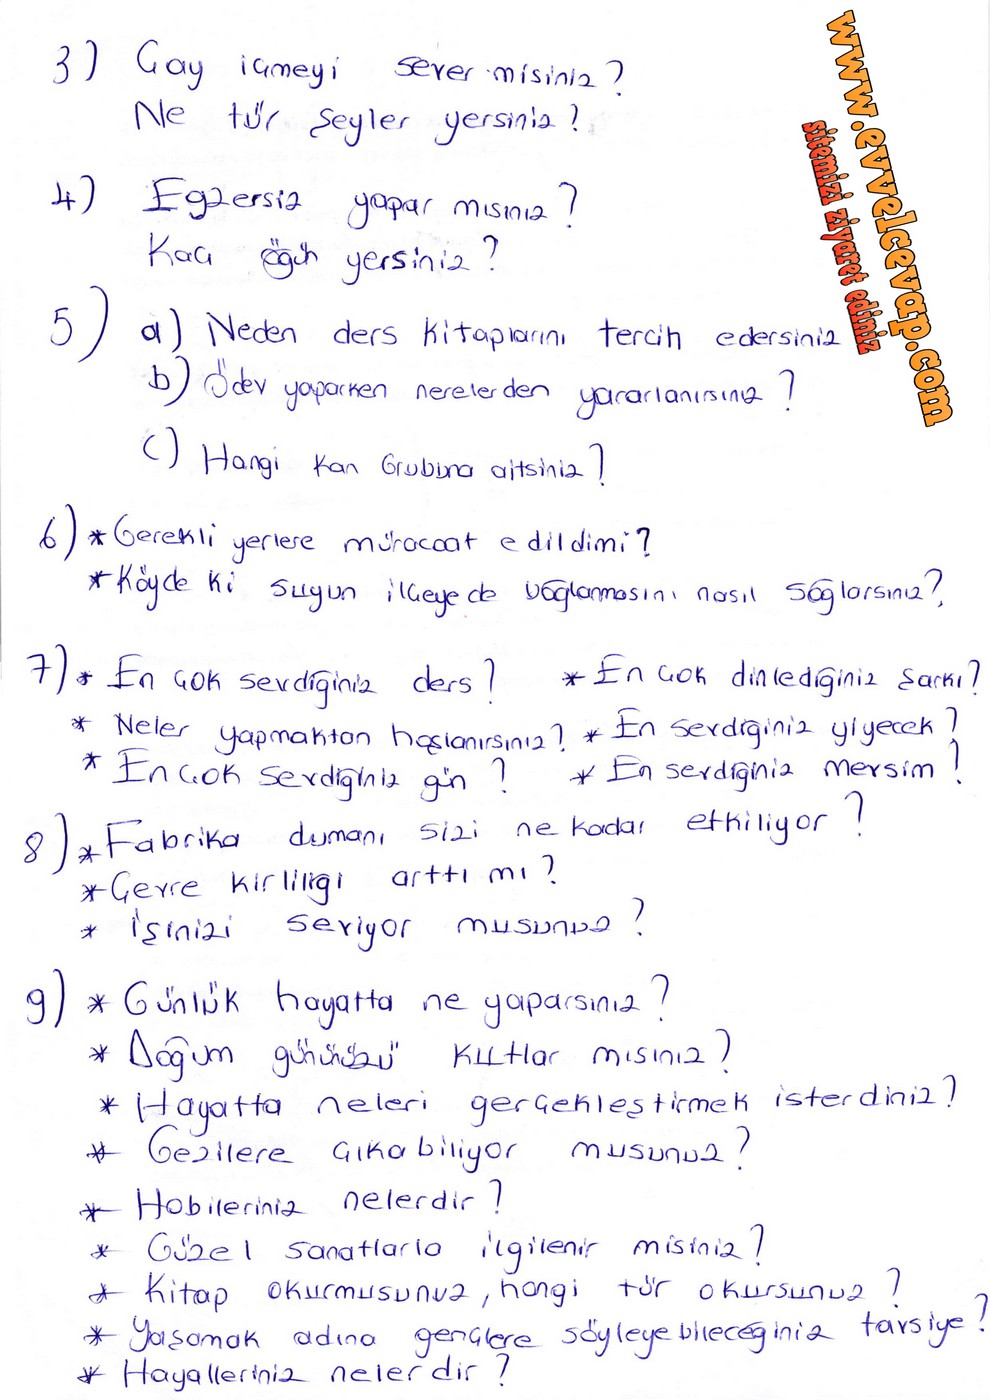 3) Çay içmeyi sever misiniz?
Ne tür şeyler yersiniz?
4) Egzersiz yapar mısınız?
Kaç öğün yersiniz?
5) a) Neden ders kitaplarını tercih edersiniz
b) Ödev yaparken nerelerden yararlanırsınız?
c) Hangi kan Grubuna aitsiniz?
6) * Gerekli yerlere müracaat edildimi?
* Köyde ki suyun ilçeyede bağlanmasını nasıl sağlarsınız?
7) * En çok sevdiğiniz ders? * En çok dinlediğiniz şarkı?
* Neler yapmaktan hoşlanırsınız? * En sevdiğiniz yiyecek?
* En çok sevdiğiniz gün? * En sevdiğiniz mevsim!
8) * Fabrika dumanı sizi ne kadar etkiliyor?
* Çevre kirliliği arttı mı?
* İşinizi seviyor musunuz?
9) * Günlük hayatta ne yaparsınız?
* Doğum gününüzü kutlar mısınız?
* Hayatta neleri gerçekleştirmek isterdiniz?
* Gezilere çıkabiliyor musunuz?
* Hobileriniz nelerdir?
* Güzel sanatlarla ilgilenir misiniz?
* Kitap okurmusunuz, hangi tür okursunuz?
* Yaşamak adına gençlere söyleyebileceğiniz tavsiye?
* Hayalleriniz nelerdir?
www.evvelcevap.com
sitemizi ziyaret ediniz